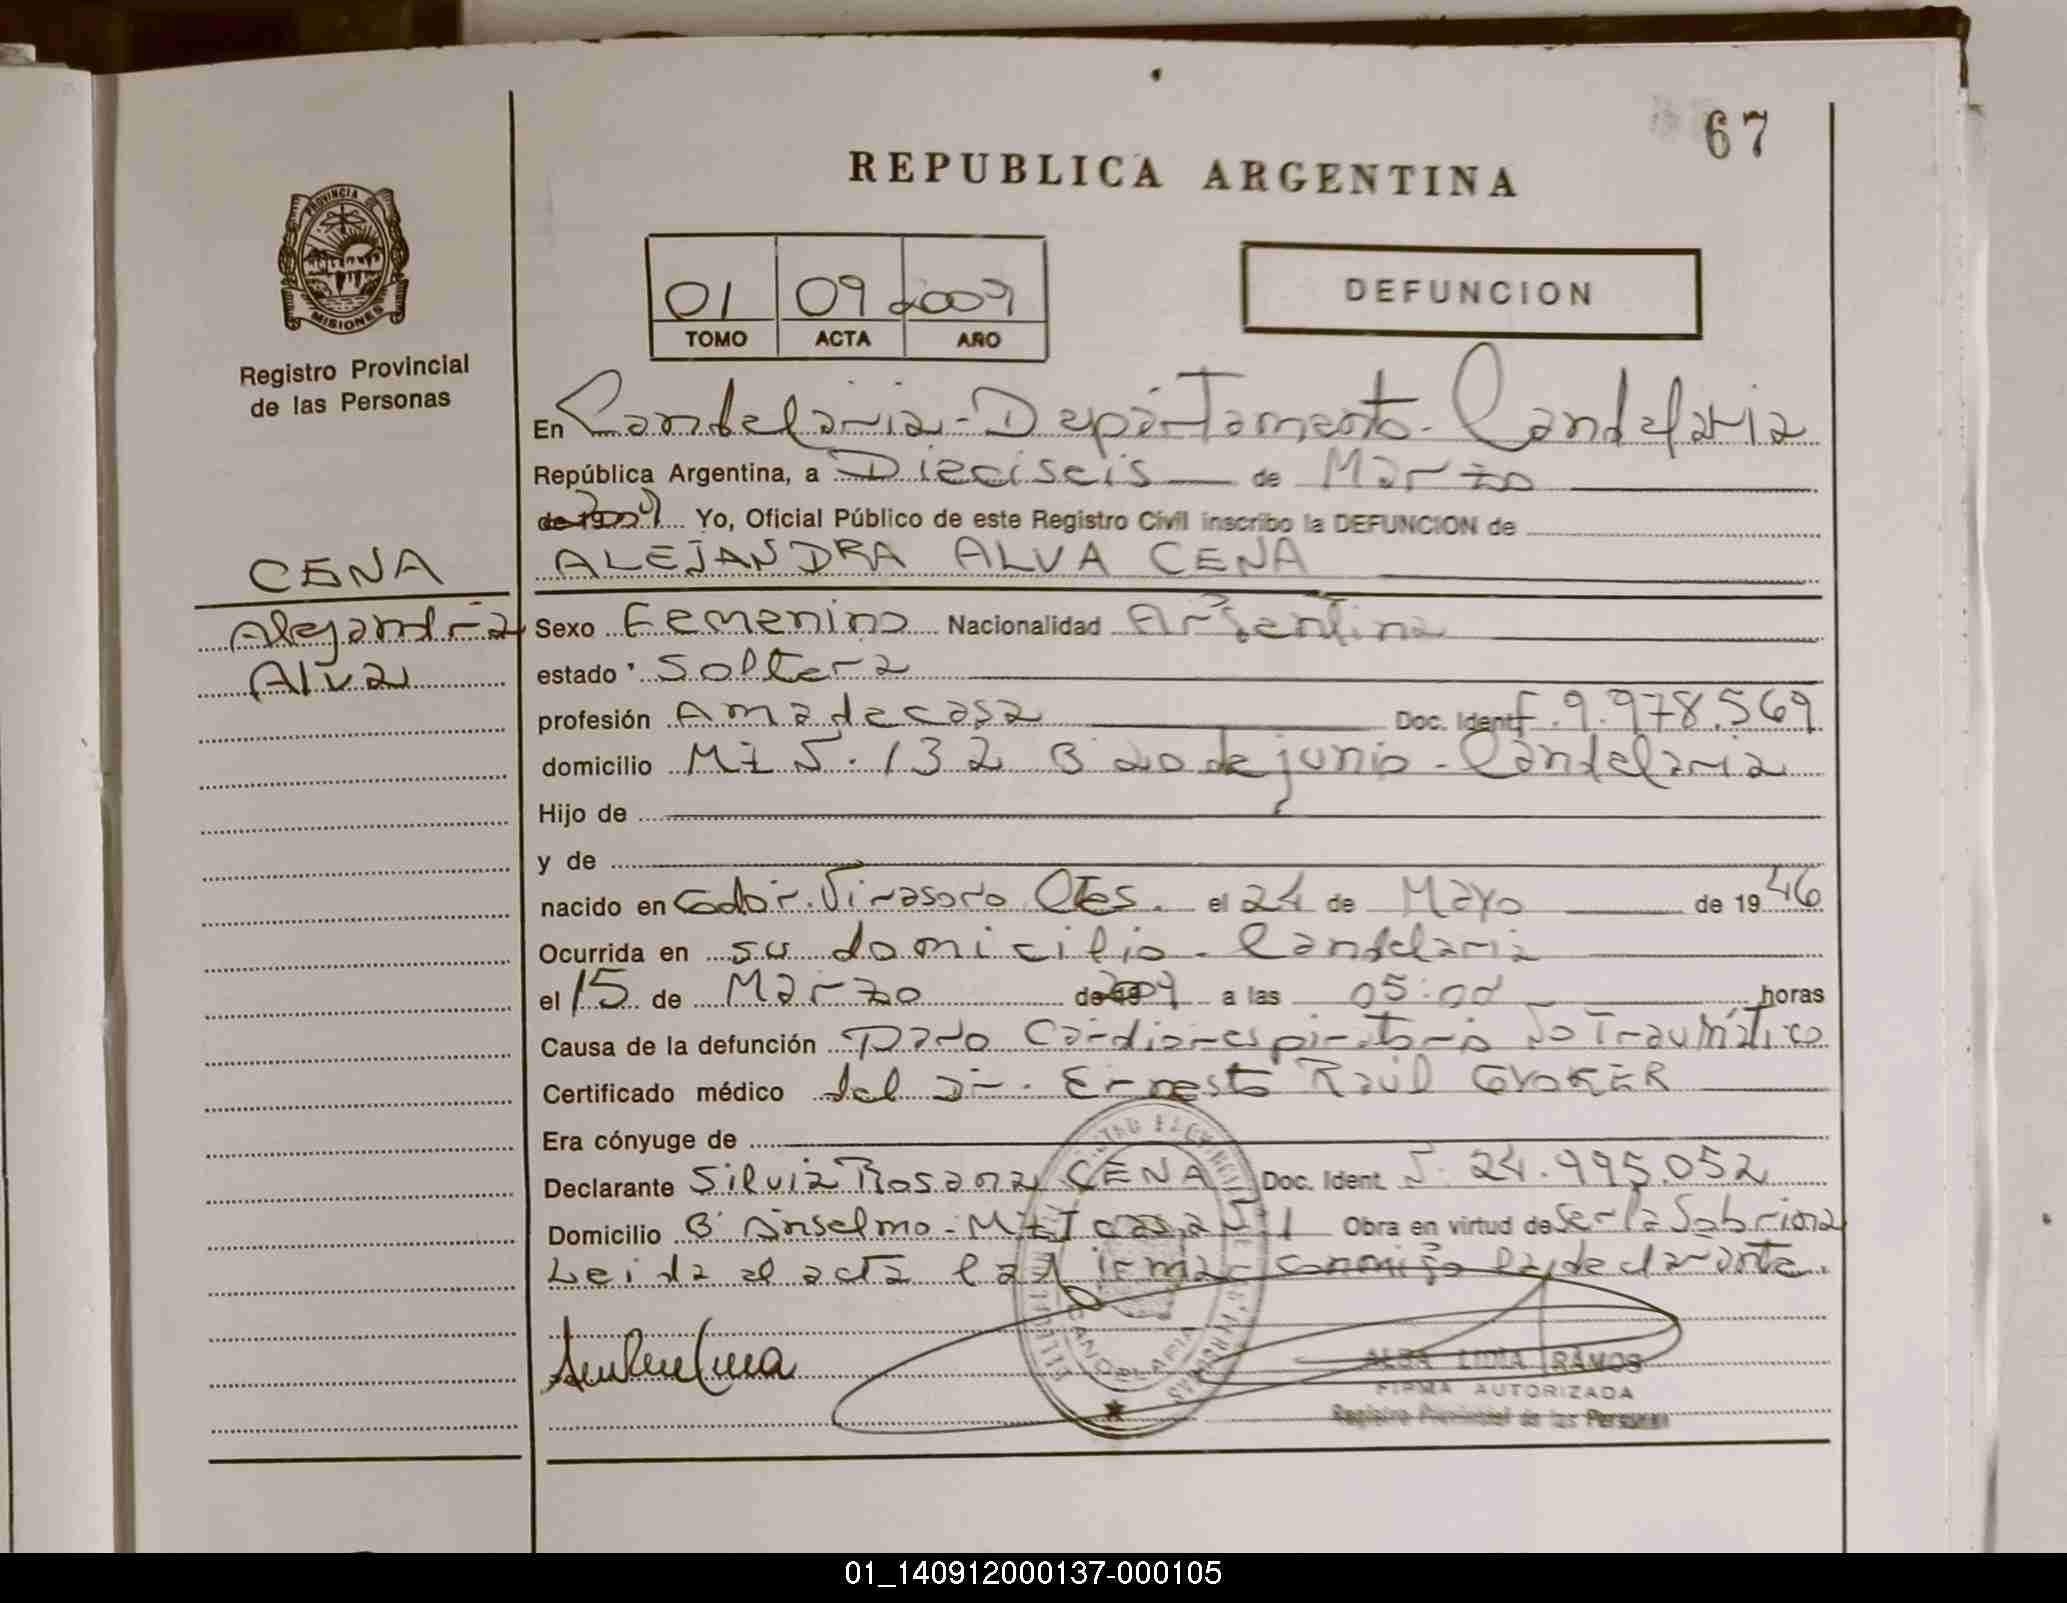 67
REPUBLICA ARGENTINA
PROVINCIA DE
MISIONES
Registro Provincial
de las Personas
01 09 2009
TOMO ACTA AÑO
DEFUNCION
En Candelaria - Departamento - Candelaria
República Argentina, a Dieciseis de Marzo
de 2009 Yo, Oficial Público de este Registro Civil inscribo la DEFUNCION de
ALEJANDRA ALVA CENA
CENA
Alejandra
Alva
Sexo Femenino Nacionalidad Argentina
estado Soltera
profesión Ama de casa Doc. Ident. F. 9.978.569
domicilio Mz 5. 132 B° 20 de junio - Candelaria
Hijo de
y de
nacido en Gdor. Virasoro Ctes. el 24 de Mayo de 1946
Ocurrida en su domicilio - Candelaria
el 15 de Marzo de 2009 a las 05:00 horas
Causa de la defunción Paro Cardiorespiratorio No Traumático
Certificado médico del Dr. Ernesto Raúl
Era cónyuge de
Declarante Silvia Rosana CENA Doc. Ident. 24.995.052
Domicilio B° Anselmo - Mz I casa Obra en virtud de Ser la Sobrina
Leida el acta la firma conmigo la declarante.
CANDELARIA
ALBA LIDIA RAMOS
FIRMA AUTORIZADA
Registro Provincial de las Personas
01_140912000137-000105